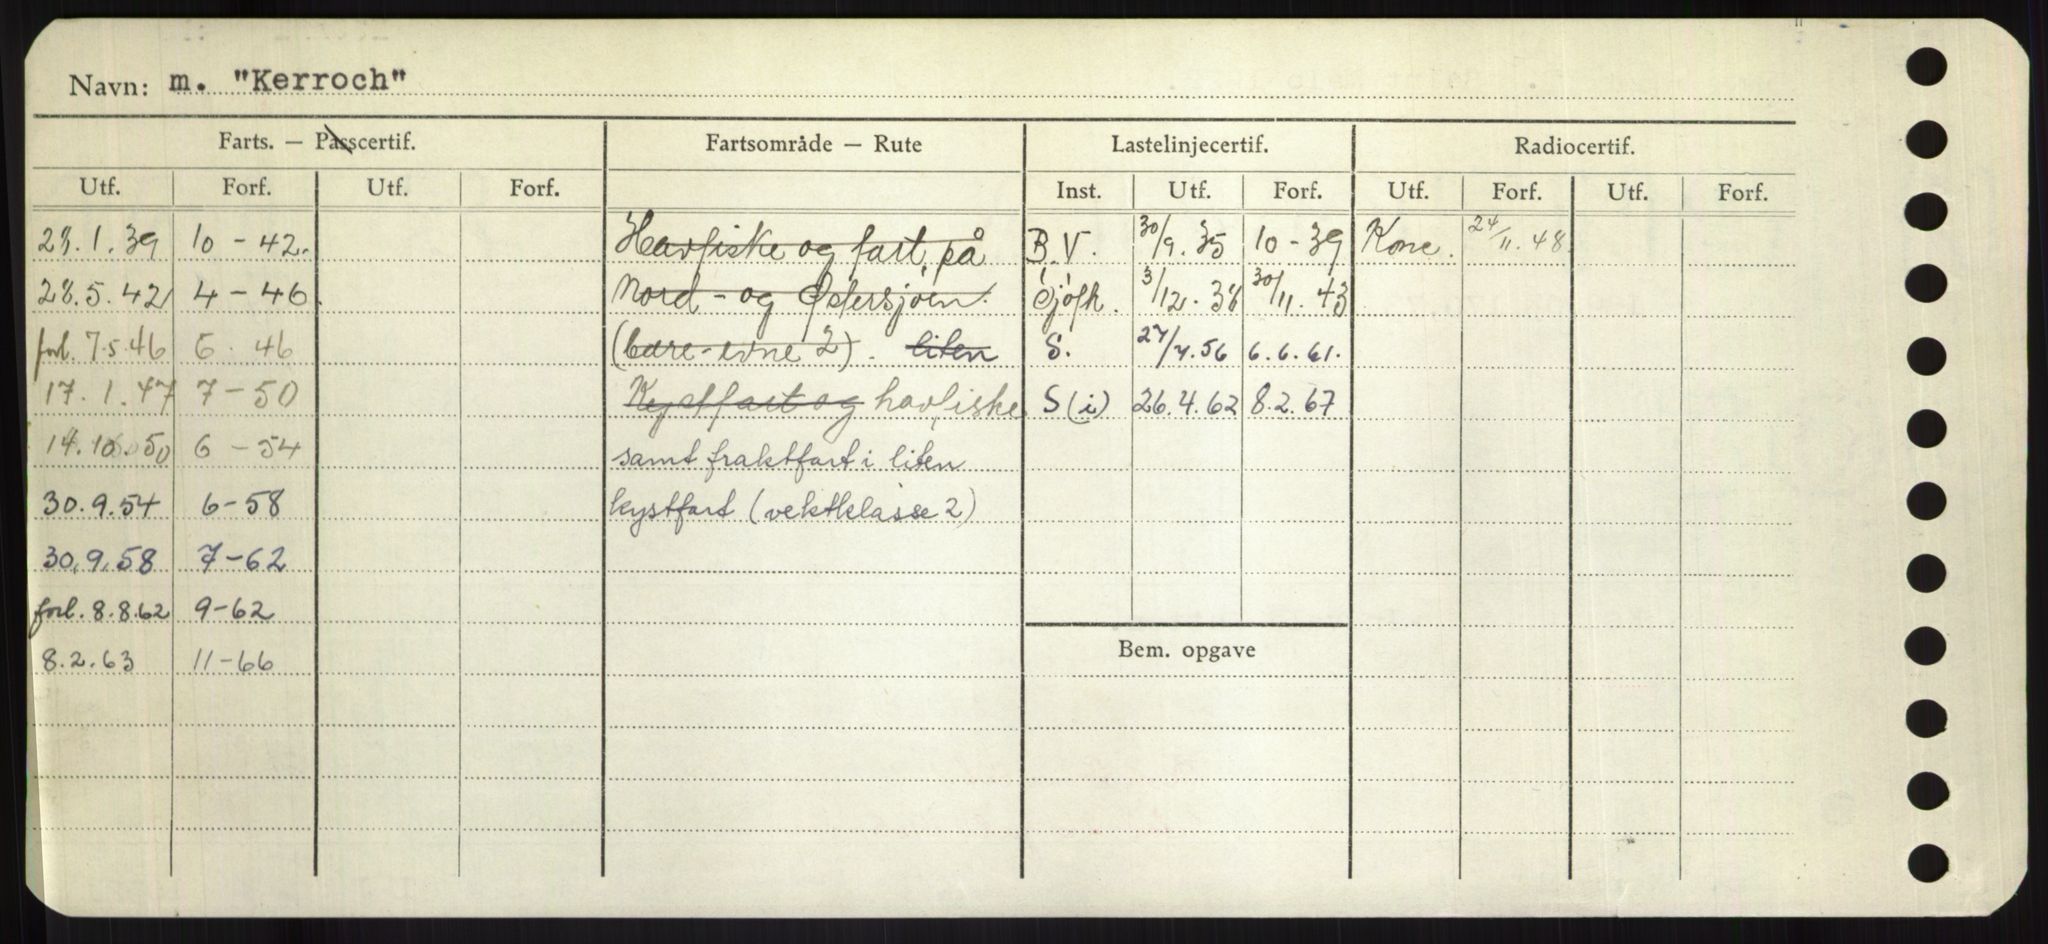 Navn: m. "Kerroch"
Farts. — Passcertif. Fartsområde — Rute Lastelinjecertif. Radiocertif.
Utf. Forf. Utf. Forf. Inst. Utf. Forf. Utf. Forf. Utf. Forf.
28.1.39 10-42. Havfiske og fart på B.V. 30/9.35 10-39 Konc. 24/11.48
28.5.42 4-46 Nord- og Østersjøen. Sjøfk. 3/12.38 30/11.43
forl. 7.5.46 6.46 (bære-evne 2). liten S. 27/7.56 6.6.61.
17.1.47 7-50 Kystfart og havfiske S(i) 26.4.62 8.2.67
14.10.50 6-54 samt fraktfart i liten
30.9.54 6-58 kystfart (vektklasse 2)
30.9.58 7-62
forl. 8.8.62 9-62
8.2.63 11-66
Bem. opgave